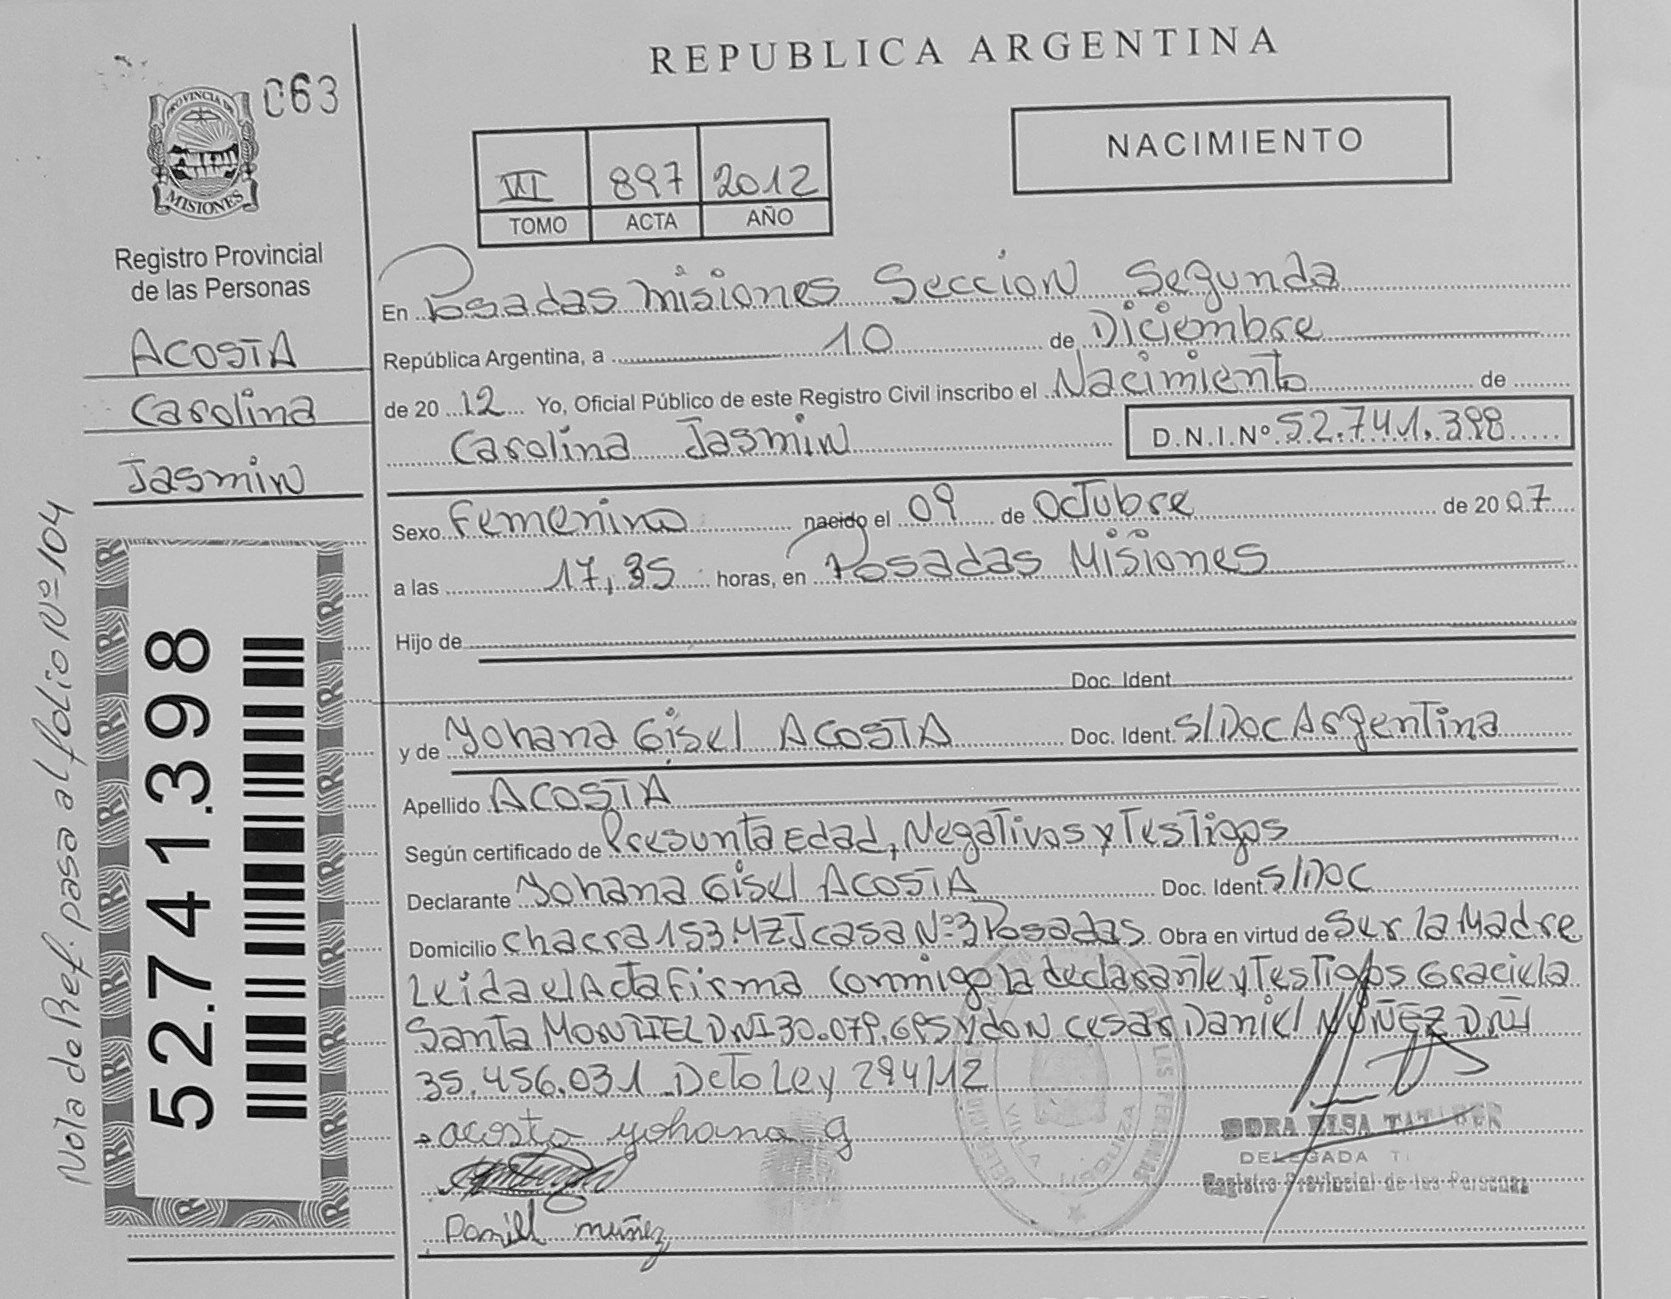 REPUBLICA ARGENTINA
063
PROVINCIA DE
MISIONES
Registro Provincial
de las Personas
ACOSTA
Carolina
Jasmin
Nota de Ref. pasa al folio Nº 104
52.741.398
VI 897 2012
TOMO ACTA AÑO
NACIMIENTO
En Posadas Misiones Seccion Segunda
República Argentina, a 10 de Diciembre
de 20 12 Yo, Oficial Público de este Registro Civil inscribo el Nacimiento de
Carolina Jasmin D.N.I.Nº 52.741.398
Sexo Femenino nacido el 09 de Octubre de 20 07
a las 17,35 horas, en Posadas Misiones
Hijo de
Doc. Ident.
y de Yohana Gisel ACOSTA Doc. Ident. S/Doc Argentina
Apellido ACOSTA
Según certificado de Presunta Edad, Negativos y Testigos
Declarante Yohana Gisel ACOSTA Doc. Ident. S/Doc
Domicilio chacra 153 MZ J casa Nº 3 Posadas. Obra en virtud de Ser la Madre
Leida el Acta firma conmigo la declarante y Testigos Graciela
Santa MONTIEL DNI 30.079.695 y don Cesar Daniel NUÑEZ DNI
35.456.031 _ Deto Ley 294/12
acosta yohana g
Daniel muñez
DORA ELSA
DELEGADA
Registro Provincial de las Personas